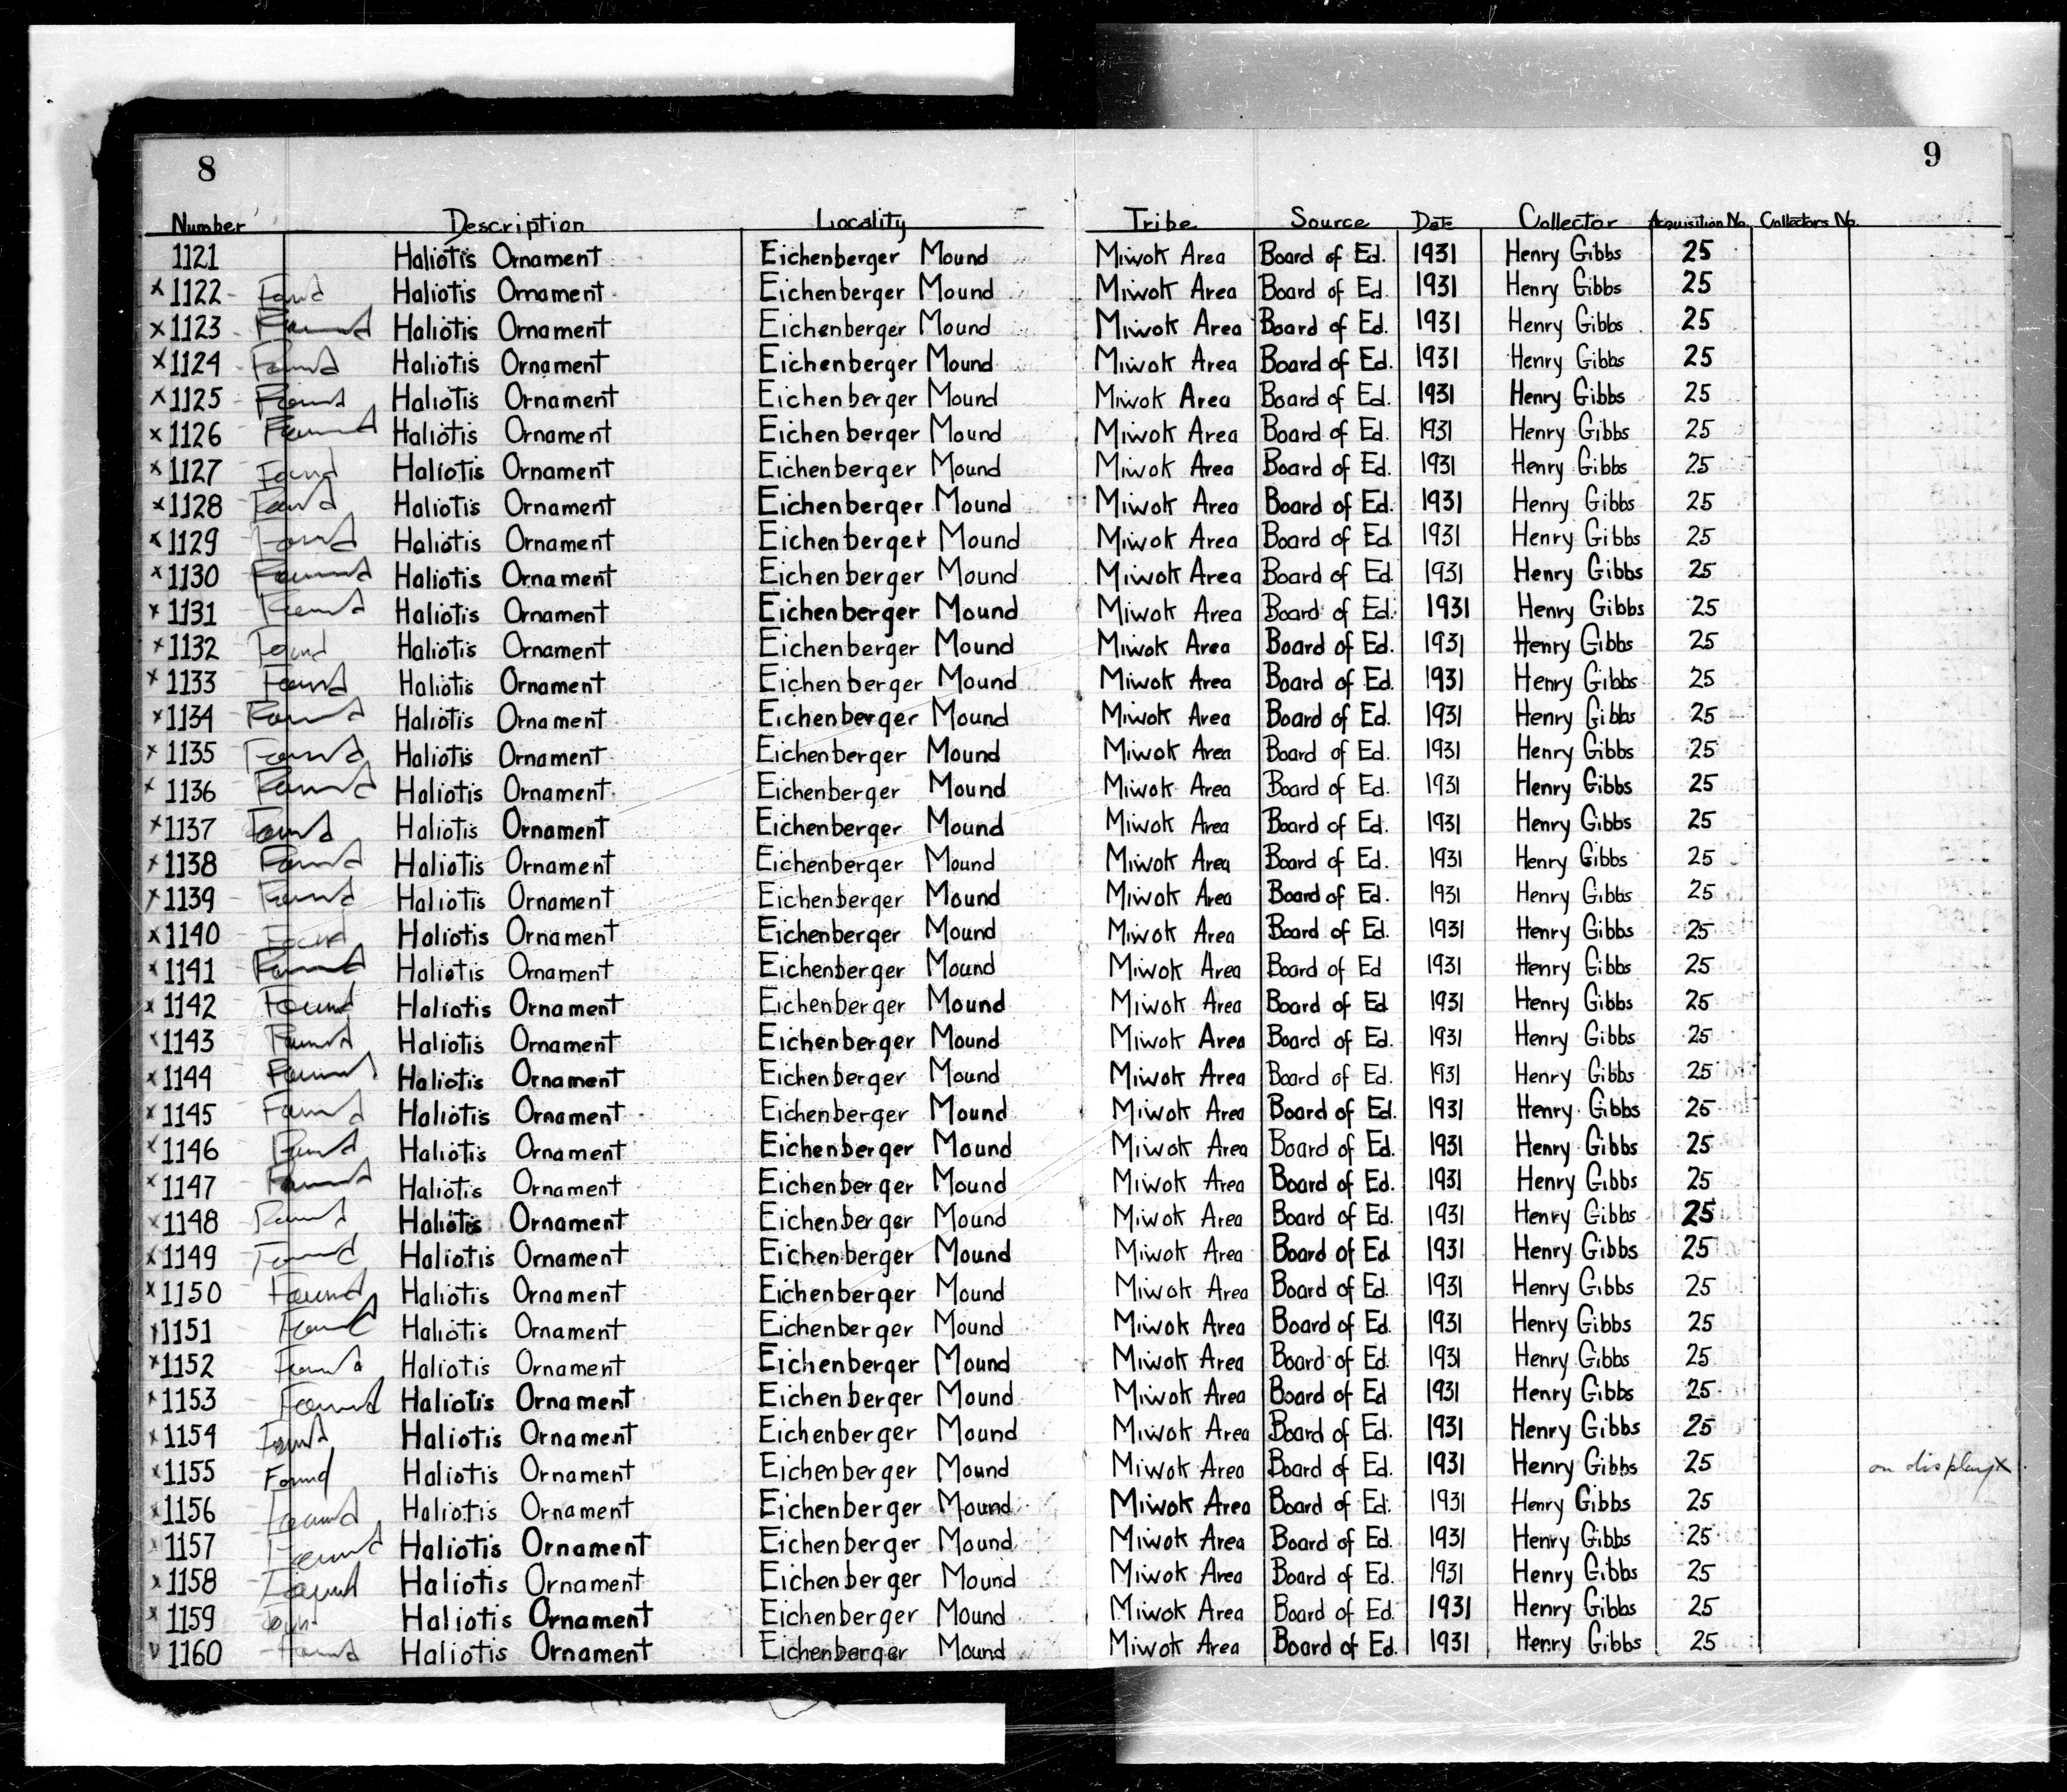 8 9
Number Description Locality Tribe Source Date Collector Acquisition No. Collectors No.
1121 Haliotis Ornament Eichenberger Mound Miwok Area Board of Ed. 1931 Henry Gibbs 25
x 1122 Found Haliotis Ornament Eichenberger Mound Miwok Area Board of Ed. 1931 Henry Gibbs 25
x 1123 Found Haliotis Ornament Eichenberger Mound Miwok Area Board of Ed. 1931 Henry Gibbs 25
x 1124 Found Haliotis Ornament Eichenberger Mound Miwok Area Board of Ed. 1931 Henry Gibbs 25
x 1125 Found Haliotis Ornament Eichenberger Mound Miwok Area Board of Ed. 1931 Henry Gibbs 25
x 1126 Found Haliotis Ornament Eichenberger Mound Miwok Area Board of Ed. 1931 Henry Gibbs 25
x 1127 Found Haliotis Ornament Eichenberger Mound Miwok Area Board of Ed. 1931 Henry Gibbs 25
x 1128 Found Haliotis Ornament Eichenberger Mound Miwok Area Board of Ed. 1931 Henry Gibbs 25
x 1129 Found Haliotis Ornament Eichenberger Mound Miwok Area Board of Ed 1931 Henry Gibbs 25
x 1130 Found Haliotis Ornament Eichenberger Mound Miwok Area Board of Ed 1931 Henry Gibbs 25
x 1131 Found Haliotis Ornament Eichenberger Mound Miwok Area Board of Ed. 1931 Henry Gibbs 25
x 1132 Found Haliotis Ornament Eichenberger Mound Miwok Area Board of Ed. 1931 Henry Gibbs 25
x 1133 Found Haliotis Ornament Eichenberger Mound Miwok Area Board of Ed. 1931 Henry Gibbs 25
x 1134 Found Haliotis Ornament Eichenberger Mound Miwok Area Board of Ed. 1931 Henry Gibbs 25
x 1135 Found Haliotis Ornament Eichenberger Mound Miwok Area Board of Ed. 1931 Henry Gibbs 25
x 1136 Found Haliotis Ornament Eichenberger Mound Miwok Area Board of Ed. 1931 Henry Gibbs 25
x 1137 Found Haliotis Ornament Eichenberger Mound Miwok Area Board of Ed. 1931 Henry Gibbs 25
x 1138 Found Haliotis Ornament Eichenberger Mound Miwok Area Board of Ed. 1931 Henry Gibbs 25
x 1139 Found Haliotis Ornament Eichenberger Mound Miwok Area Board of Ed. 1931 Henry Gibbs 25
x 1140 Found Haliotis Ornament Eichenberger Mound Miwok Area Board of Ed. 1931 Henry Gibbs 25
x 1141 Found Haliotis Ornament Eichenberger Mound Miwok Area Board of Ed 1931 Henry Gibbs 25
x 1142 Found Haliotis Ornament Eichenberger Mound Miwok Area Board of Ed 1931 Henry Gibbs 25
x 1143 Found Haliotis Ornament Eichenberger Mound Miwok Area Board of Ed. 1931 Henry Gibbs 25
x 1144 Found Haliotis Ornament Eichenberger Mound Miwok Area Board of Ed. 1931 Henry Gibbs 25
x 1145 Found Haliotis Ornament Eichenberger Mound Miwok Area Board of Ed. 1931 Henry Gibbs 25
x 1146 Found Haliotis Ornament Eichenberger Mound Miwok Area Board of Ed. 1931 Henry Gibbs 25
x 1147 Found Haliotis Ornament Eichenberger Mound Miwok Area Board of Ed. 1931 Henry Gibbs 25
x 1148 Found Haliotis Ornament Eichenberger Mound Miwok Area Board of Ed. 1931 Henry Gibbs 25
x 1149 Found Haliotis Ornament Eichenberger Mound Miwok Area Board of Ed 1931 Henry Gibbs 25
x 1150 Found Haliotis Ornament Eichenberger Mound Miwok Area Board of Ed. 1931 Henry Gibbs 25
x 1151 Found Haliotis Ornament Eichenberger Mound Miwok Area Board of Ed. 1931 Henry Gibbs 25
x 1152 Found Haliotis Ornament Eichenberger Mound Miwok Area Board of Ed. 1931 Henry Gibbs 25
x 1153 Found Haliotis Ornament Eichenberger Mound Miwok Area Board of Ed 1931 Henry Gibbs 25
x 1154 Found Haliotis Ornament Eichenberger Mound Miwok Area Board of Ed. 1931 Henry Gibbs 25
x 1155 Found Haliotis Ornament Eichenberger Mound Miwok Area Board of Ed. 1931 Henry Gibbs 25 on display x
x 1156 Found Haliotis Ornament Eichenberger Mound Miwok Area Board of Ed. 1931 Henry Gibbs 25
x 1157 Found Haliotis Ornament Eichenberger Mound Miwok Area Board of Ed. 1931 Henry Gibbs 25
x 1158 Found Haliotis Ornament Eichenberger Mound Miwok Area Board of Ed. 1931 Henry Gibbs 25
x 1159 Found Haliotis Ornament Eichenberger Mound Miwok Area Board of Ed. 1931 Henry Gibbs 25
v 1160 Found Haliotis Ornament Eichenberger Mound Miwok Area Board of Ed. 1931 Henry Gibbs 25